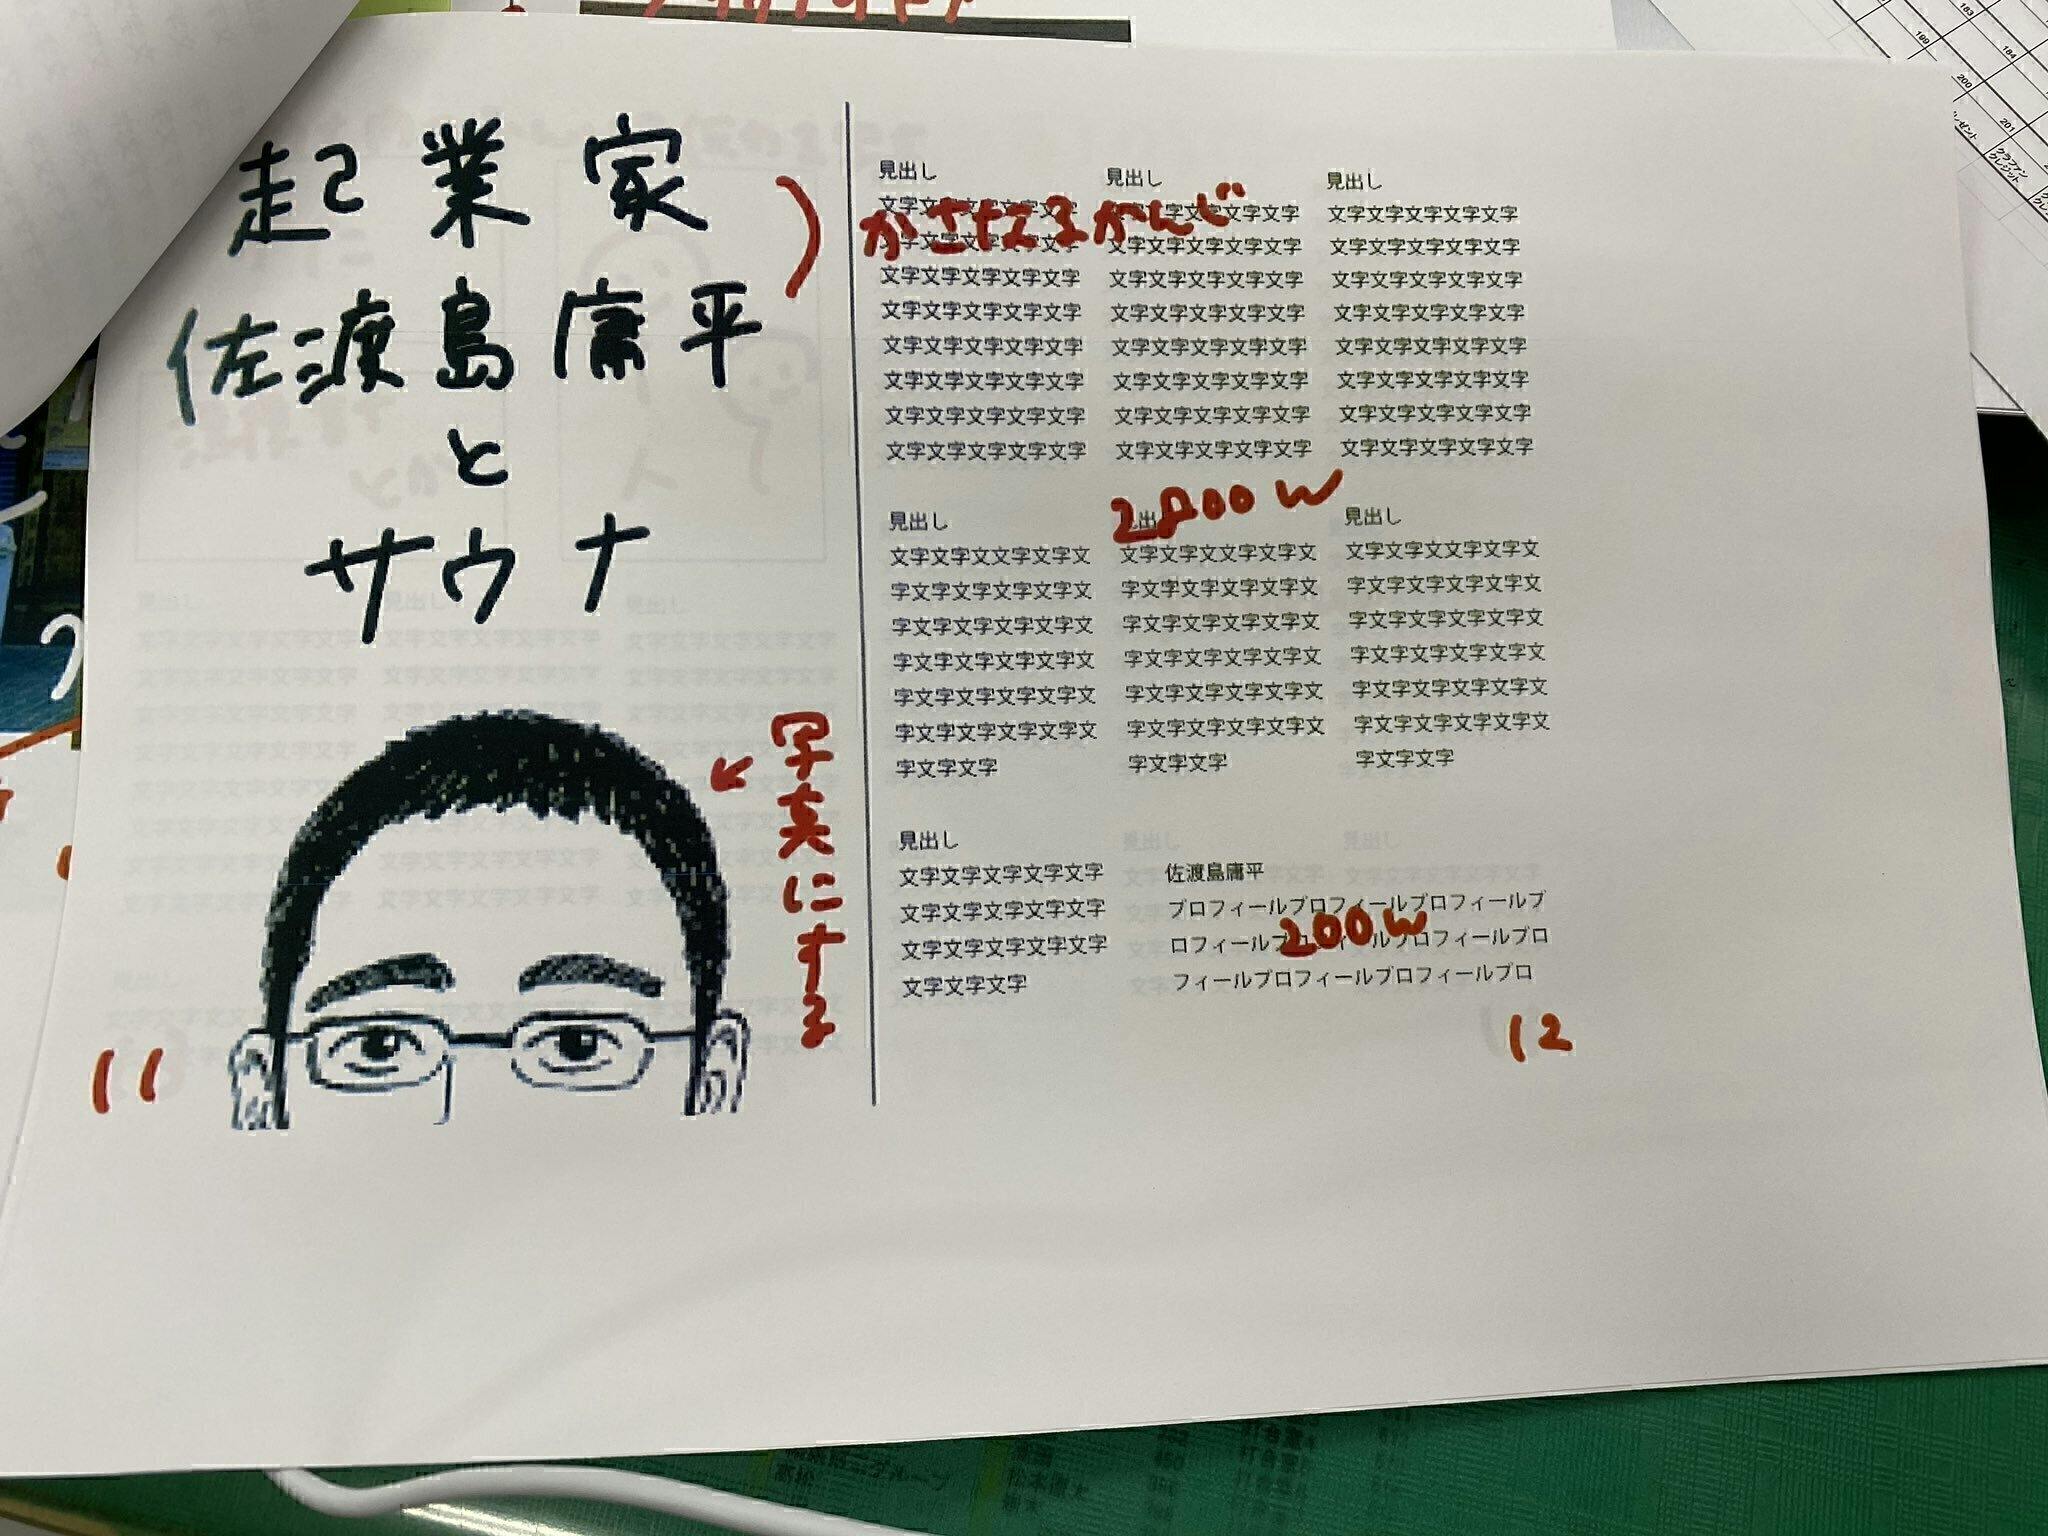 起業家
佐渡島庸平
と
サウナ
写真にする
11
かさなるかんじ
見出し
文字文字文字文字文字
文字文字文字文字文字
文字文字文字文字文字
文字文字文字文字文字
文字文字文字文字文字
文字文字文字文字文字
文字文字文字文字文字
見出し
文字文字文字文字文字
文字文字文字文字文字
文字文字文字文字文字
文字文字文字文字文字
文字文字文字文字文字
文字文字文字文字文字
文字文字文字文字文字
見出し
文字文字文字文字文字
文字文字文字文字文字
文字文字文字文字文字
文字文字文字文字文字
文字文字文字文字文字
文字文字文字文字文字
文字文字文字文字文字
文字文字文字文字文字
2800w
見出し
文字文字文文字文字文
字文字文字文字文字文
字文字文字文字文字文
字文字文字文字文字文
字文字文字文字文字文
字文字文字文字文字文
字文字文字
見出し
文字文字文文字文字文
字文字文字文字文字文
字文字文字文字文字文
字文字文字文字文字文
字文字文字文字文字文
字文字文字文字文字文
字文字文字
見出し
文字文字文文字文字文
字文字文字文字文字文
字文字文字文字文字文
字文字文字文字文字文
字文字文字文字文字文
字文字文字文字文字文
字文字文字
見出し
文字文字文字文字文字
文字文字文字文字文字
文字文字文字文字文字
文字文字文字
佐渡島庸平
プロフィールプロフィールプロフィールプ
ロフィールプロフィールプロフィールプロ
フィールプロフィールプロフィールプロ
200w
12
183
199
184
200
201
クラファン
クレジット